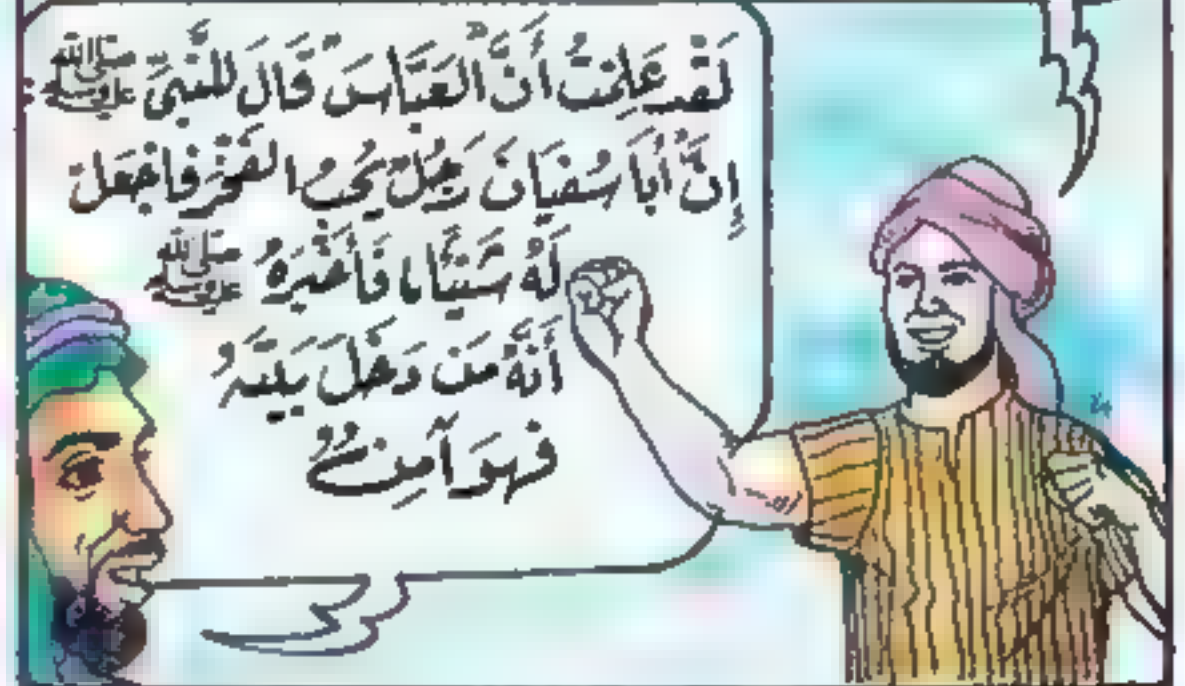 لَقَدْ عَلِمْتُ أَنَّ الْعَبَّاسَ قَالَ لِلنَّبِيِّ ﷺ
إِنَّ أَبَا سُفْيَانَ رَجُلٌ يُحِبُّ الفَخْرَ فَاجْعَلْ
لَهُ شَيْئًا، فَأَخْبَرَهُ ﷺ
أَنَّهُ مَنْ دَخَلَ بَيْتَهُ
فَهُوَ آمِنٌ